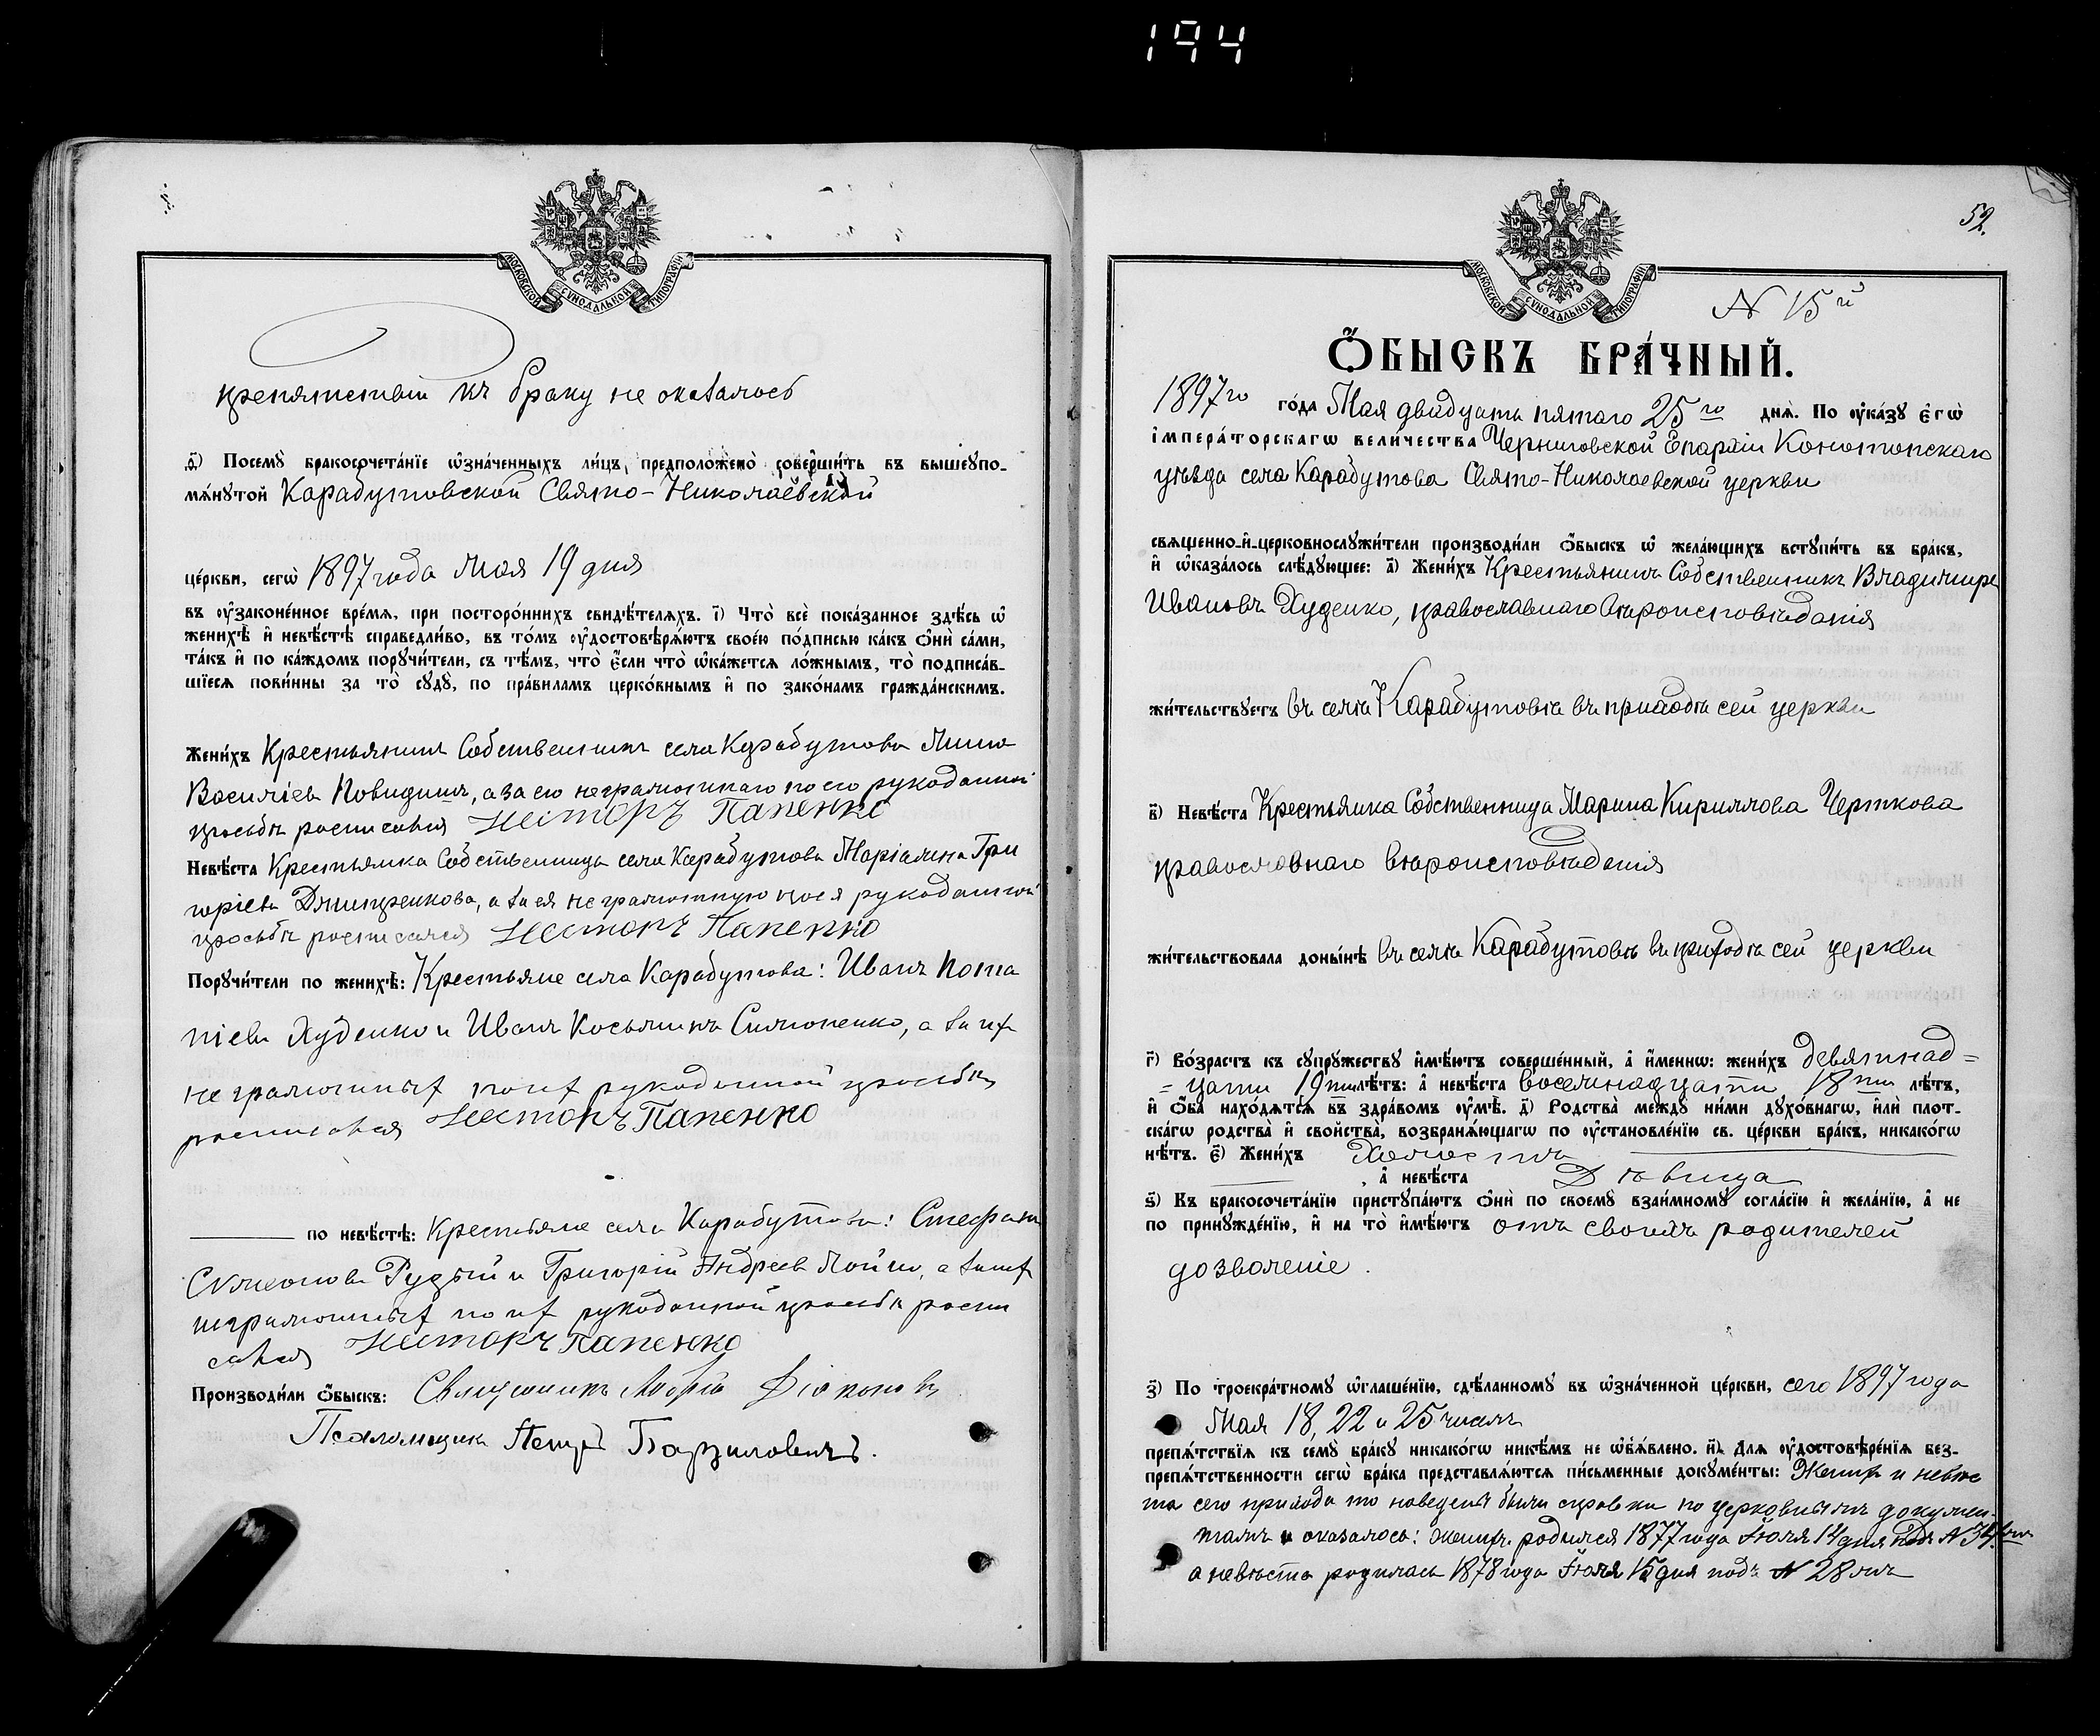 194
МОСКОВСКОЙ СѴНОДАЛЬНОЙ ТИПОГРАФІИ
препятствій къ браку не оказалось
ѳ҃) Посемꙋ̀ бракосочета́нїе ѡ҆зна́ченныхъ ли́цъ предположенѡ̀ соверши́ть въ вышеꙋпо-
мѧ́нꙋтой Карабутовской Свято-Николаевской
це́ркви, сегѡ̀ 1897 года Мая 19 дня
въ ᲂу҆законе́нное вре́мѧ, при посторо́ннихъ свидѣ́телѧхъ. і҃) Что̀ всѐ пока́занное здѣ́сь ѡ҆
женихѣ̀ и҆ невѣ́стѣ справедли́во, въ то́мъ ᲂу҆достовѣрѧ́ютъ свое́ю по́дписью ка́къ ѻ҆нѝ са́ми,
та́къ и҆ по ка́ждомъ порꙋчи́тели, съ тѣ́мъ, что̀ є҆́сли что̀ ѡ҆ка́жетсѧ ло́жнымъ, то̀ подписа́в-
шїесѧ пови́нны за то̀ сꙋдꙋ̀, по пра́виламъ церко́внымъ и҆ по зако́намъ гражда́нскимъ.
Жени́хъ Крестьянинъ Собственникъ села Карабутова
Василіевъ а за его неграмотнаго по его рукоданной
просьбѣ росписался Несторъ Папенко
Невѣ́ста Крестьянка Собственница села Карабутова Маріамна Гри
горіева Дмитренкова, а за ея неграмотную по ея рукоданной
просьбѣ росписался Несторъ Папенко
Порꙋчи́тели по женихѣ̀: Крестьяне села Карабутова: Иванъ Пота
піевъ Худенко и Иванъ Косьминъ Симоненко, а за их
неграмотных по их рукоданной просьбѣ
росписался Несторъ Папенко
по невѣ́стѣ: Крестьяне села Карабутова: Стефанъ
Симеоновъ Рудый и Григорій Андреевъ а за их
неграмотных по их рукоданной просьбѣ роспи
сался Несторъ Папенко
Производи́ли ѻ҆́быскъ: Священникъ Андрей Діаконовъ
Псаломщикъ Петръ Базиловичъ.
52.
МОСКОВСКОЙ СѴНОДАЛЬНОЙ ТИПОГРАФІИ
N 15й
Ѻ҆́БЫСКЪ БРА́ЧНЫЙ.
1897го го́да Мая двадцать пятаго 25го днѧ̀. По ᲂу҆ка́зꙋ є҆гѡ̀
і҆мпера́торскагѡ вели́чества Черниговской Епархіи Конотопскаго
уѣзда села Карабутова Свято-Николаевской церкви
свѧщенно-и҆-церковнослꙋжи́тели производи́ли ѻ҆́быскъ ѡ҆ жела́ющихъ встꙋпи́ть въ бра́къ,
и҆ ѡ҆каза́лось слѣ́дꙋющее: а҃) Жени́хъ Крестьянинъ Собственникъ Владиміръ
Ивановъ Худенко, православнаго вѣроисповѣданія
жи́тельствꙋетъ въ селѣ Карабутовѣ въ приходѣ сей церкви
в҃) Невѣ́ста Крестьянка Собственница Марина Кириллова Черткова
православнаго вѣроисповѣданія
жи́тельствовала доны́нѣ въ селѣ Карабутовѣ въ приходѣ сей церкви
г҃) Во́зрастъ къ сꙋпрꙋ́жествꙋ и҆мѣ́ютъ соверше́нный, а҆ и҆́меннѡ: жени́хъ девятнад=
=цати 19ти лѣ́тъ: а҆ невѣ́ста восемнадцати 18ти лѣ́тъ,
и҆ ѻ҆́ба нахо́дѧтсѧ въ здра́вомъ ᲂу҆мѣ̀. д҃) Родства̀ междꙋ̀ ни́ми дꙋхо́внагѡ, и҆лѝ плот-
ска́гѡ родства̀ и҆ свойства̀, возбранѧ́ющагѡ по ᲂу҆становле́нїю св. це́ркви бра́къ, никако́гѡ
нѣ́тъ. є҃) Жени́хъ Холостъ
, а҆ невѣ́ста Дѣвица
ѕ҃) Къ бракосочета́нїю пристꙋпа́ютъ ѻ҆нѝ по своемꙋ̀ взаи́мномꙋ согла́сїю и҆ жела́нїю, а҆ не
по принꙋжде́нїю, и҆ на то̀ и҆мѣ́ютъ отъ своихъ родителей
дозволеніе.
з҃) По троекра́тномꙋ ѡ҆глаше́нїю, сдѣ́ланномꙋ въ ѡ҆зна́ченной це́ркви, сего 1897 года
Мая 18, 22 и 25 числъ
препѧ́тствїѧ къ семꙋ̀ бра́кꙋ никако́гѡ никѣ́мъ не ѡ҆б̾ѧ́влено. и҃) Длѧ ᲂу҆достовѣре́нїѧ без-
препѧ́тственности сегѡ̀ бра́ка представлѧ́ютсѧ пи́сьменные докꙋме́нты: Жених и невѣс
та сего прихода то наведены были справки по церковнымъ докумен-
тамъ и оказалось: жених родился 1877 года Іюля 14 дня подъ N 34
а невѣста родилась 1878 года Іюля 15 дня подъ N 28